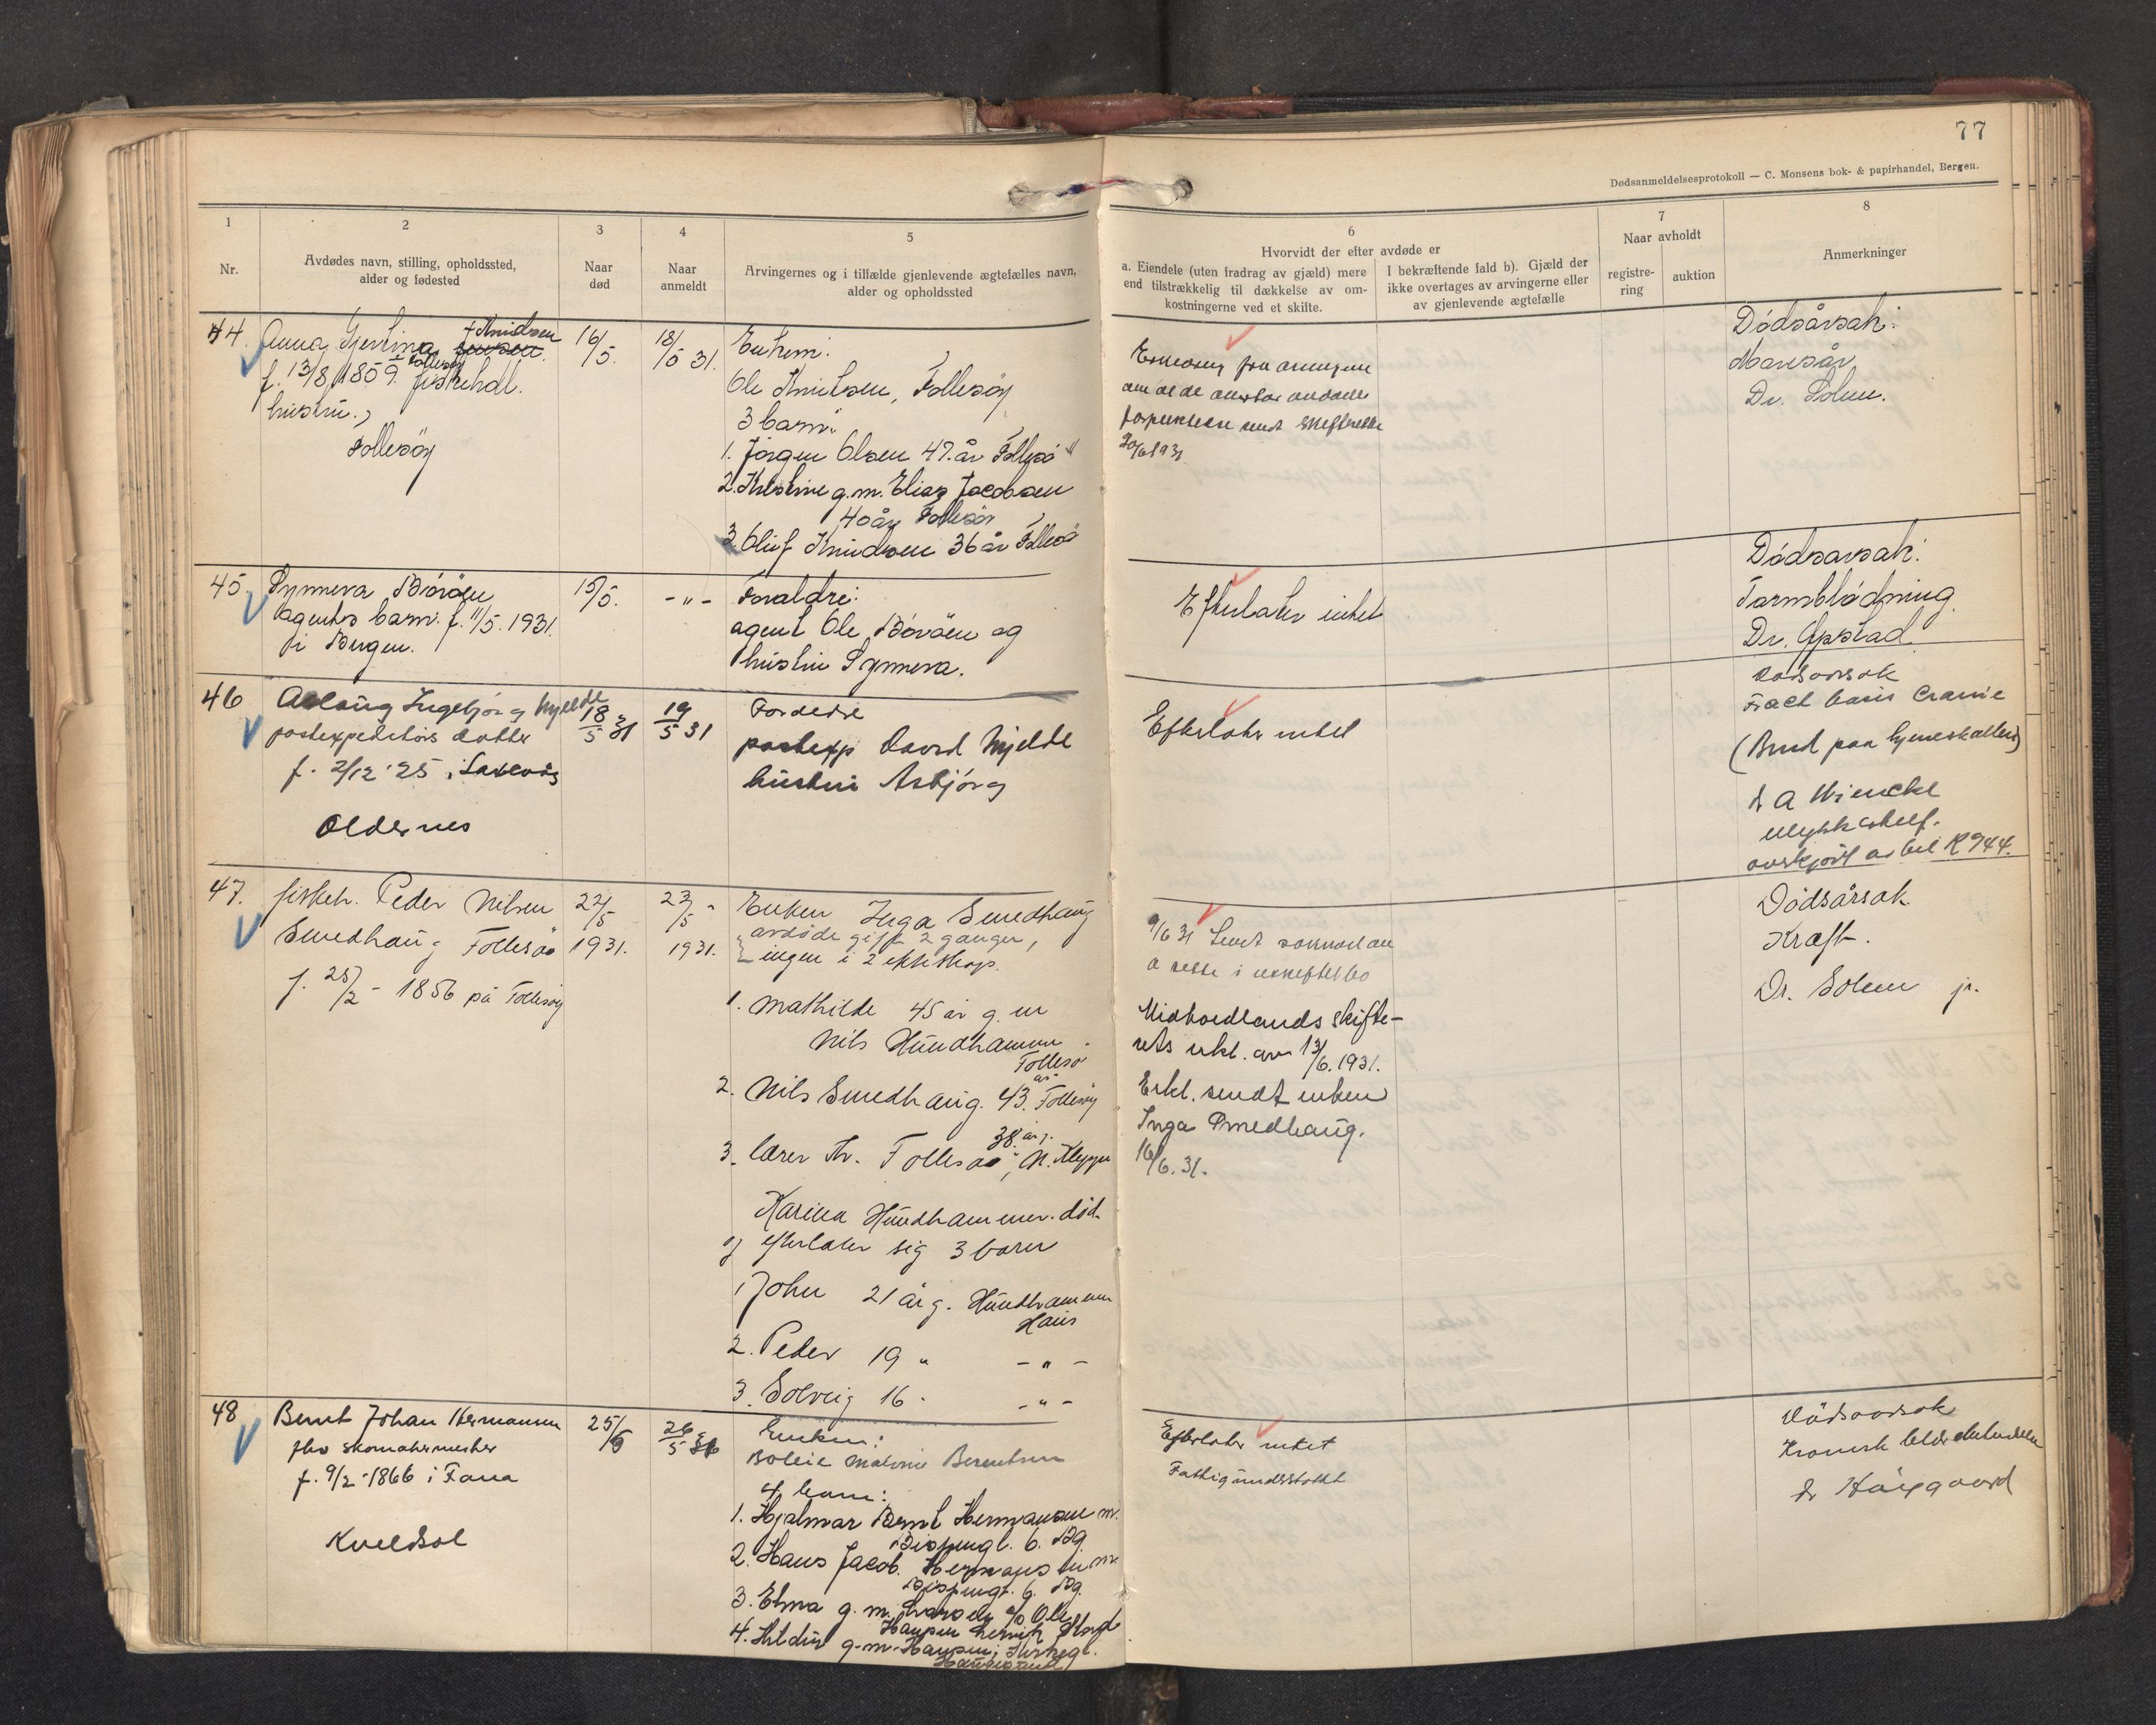 77
Dødsanmeldelsesprotokoll — C. Monsens bok- & papirhandel, Bergen.
1
2
3
4
5
6
7
8
Nr.
Avdødes navn, stilling, opholdssted,
alder og fødested
Naar
død
Naar
anmeldt
Arvingernes og i tilfælde gjenlevende ægtefælles navn,
alder og opholdssted
Hvorvidt der efter avdøde er
a. Eiendele (uten fradrag av gjæld) mere
end tilstrækkelig til dækkelse av om-
kostningerne ved et skifte.
I bekræftende fald b). Gjæld der
ikke overtages av arvingerne eller
av gjenlevende ægtefælle
Naar avholdt
registre-
ring
auktion
Anmerkninger
44.
Anna Gjertina Knudsen
f. 13/8 1859. fiskehdl.
hustru,
Follesøy
16/5.
18/5 31.
Enkem.
Ole Knutsen, Follesøy
3 barn:
1. Jørgen Olsen 47 år Follesø
2. Kristine g.m. Elias Jacobsen
40 år Follesøy
3. Oluf Knudsen 36 år Follesø
20/6 1931
Dødsårsak:
Dr. Solem.
45.
Synneva Børøen
agents barn. f. 11/5. 1931.
i Bergen.
15/5.
- " -
Foraldre:
agent Ole Børøen og
hustru Synneva.
Efterlater intet
Dødsårsak:
Tarmblødning
Dr. Opstad.
46
Aslaug Ingebjørg Mjelde
postexpeditørs datter
f. 2/12 '25 i Laksevåg
Oldernes
18/5 31
19/5 31
Foreldre
postexp David Mjelde
hustru Asbjørg
Efterlater intet
Dødsårsak
Fract basis Cranie
(Brud paa hjerneskallen)
dr A Wiencke
ulykkestilf.
overkjørt av bil R 944.
47.
fiskeh. Peder Nilsen
Smedhaug Follesøe
f. 25/2 - 1856 på Follesøy
22/5
1931.
23/5 -
1931.
Enken Inga Smedhaug
avdøde gift 2 ganger,
ingen i 2 ekteskap.
1. Mathilde 45 år g. m
Nils Hundhammer
Follesø
2. Nils Smedhaug. 43 år Follesøy
3. lærer Kr. Follesøe, 38 år g. N. Kleppe
Karina Hundhammer død
og efterlater sig 3 barn
1 John 21 år g. Hundhammer
Haus
2. Peder 19 " - " -
3. Solveig 16 - - " -
9/6 31 Sendt
Midhordlands skifte-
rets erkl. av 13/6. 1931.
Erkl. sendt enken
Inga Smedhaug.
16/6. 31.
Dødsårsak
Kræft.
Dr. Solem jr.
48
Bernt Johan Hermansen
fhv skomakermester
f. 9/2 - 1866 i Fana
Kveldsol
25/5
26/5 31
Enken:
Bolette Malvine Berentsen
4 barn:
1. Hjalmar Bernt Hermansen m.
Bispengt. 6. Bg.
2. Hans Jacob. Hermansen m.
Bispengt. 6. Bg.
3. Elna g. m. Larsen c/o Ole
Hansen Lervik Stord
4. Hildur g. m. Hansen, Kirkegt.
Haugesund
Efterlater intet
Fattigunderstøttet
Dødsårsak
Dr Høygaard